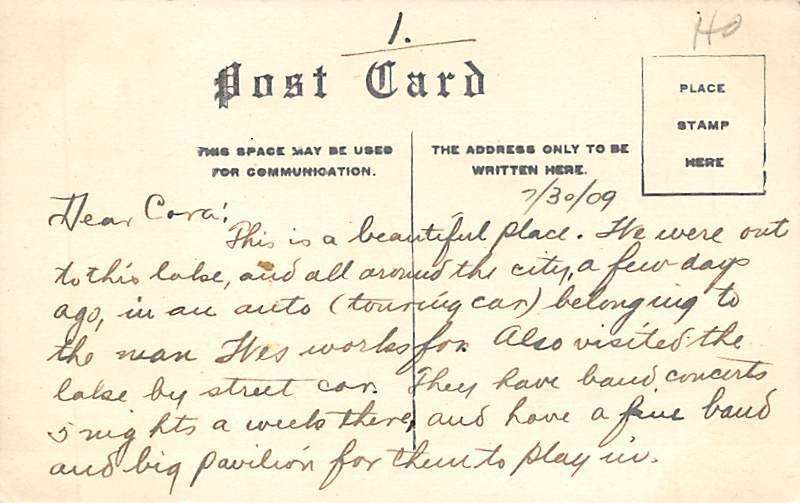 1.
40
Post Card
PLACE
STAMP
HERE
THIS SPACE MAY BE USED
FOR COMMUNICATION.
THE ADDRESS ONLY TO BE
WRITTEN HERE.
7/30/09
Dear Cora:
This is a beautiful place. We were out
to this lake, and all around the city, a few days
ago, in an auto (touring car) belonging to
the man Wes works for. Also visited the
lake by street car. They have band concerts
5 nights a week there, and have a fine band
and big pavilion for them to play in.